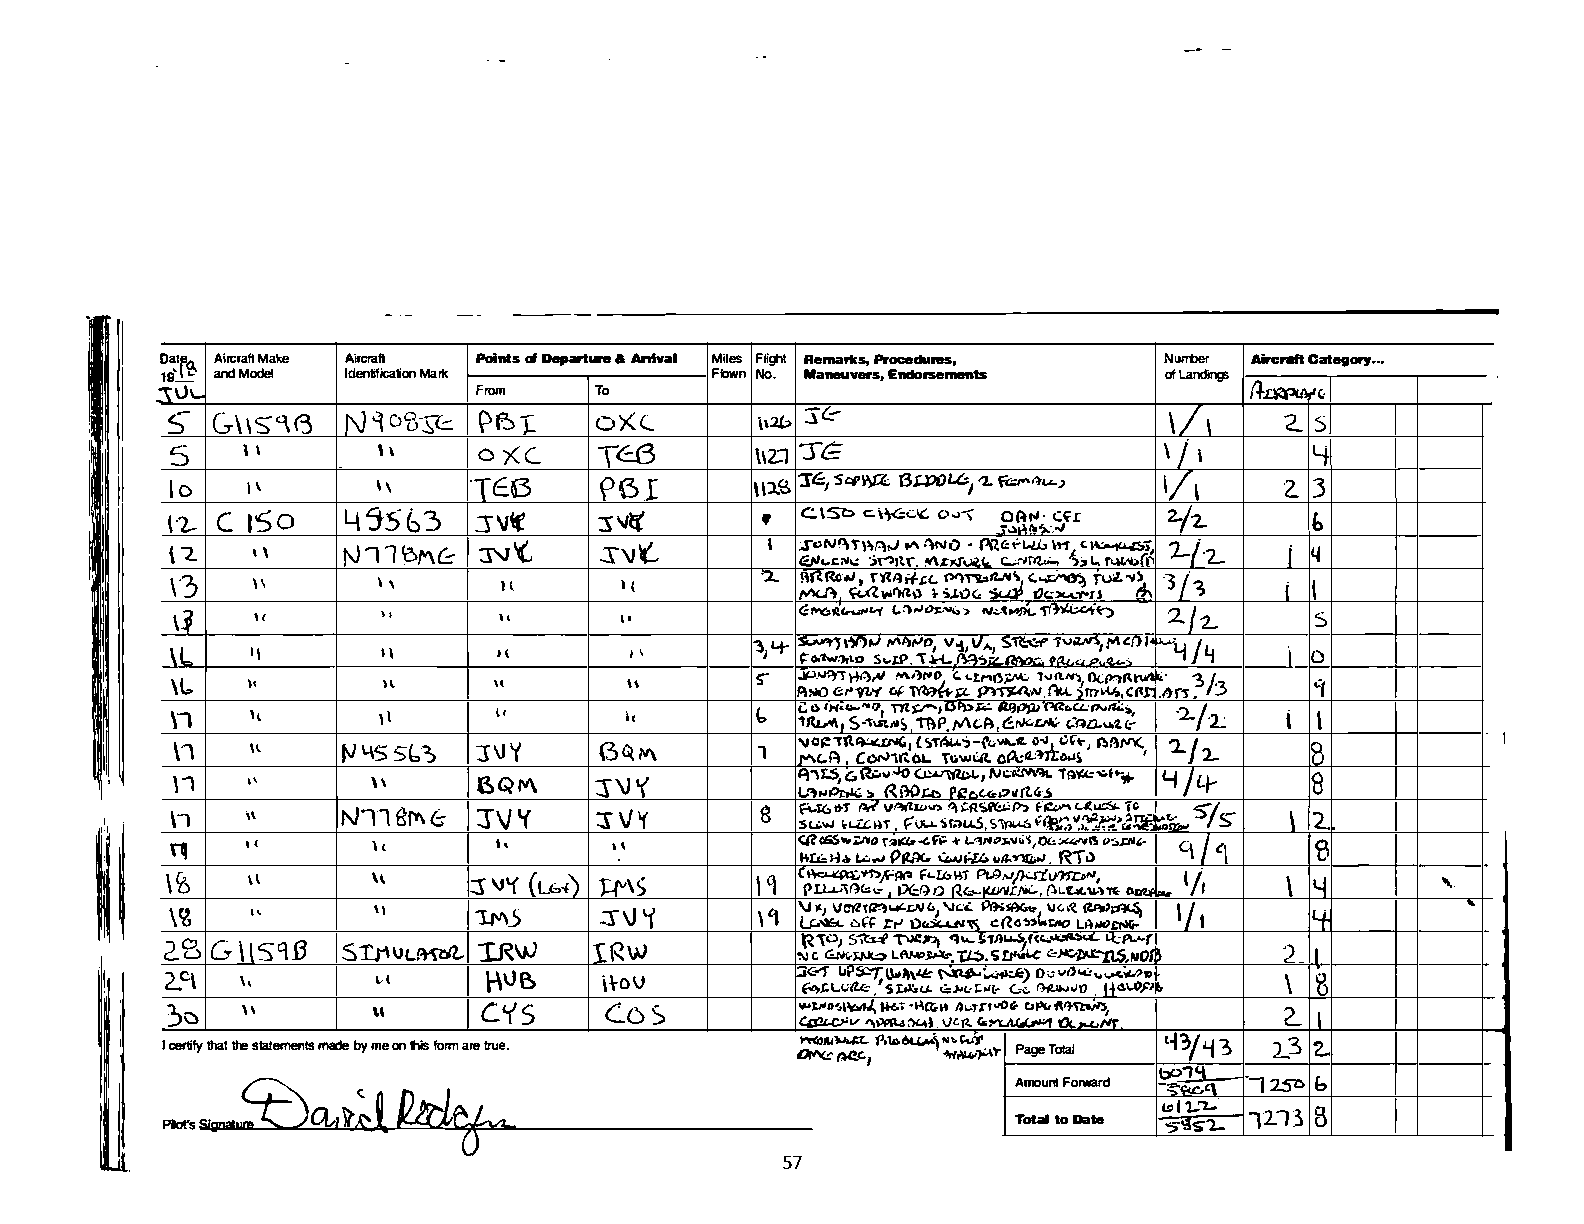 Date 19 Aircraft Make and Model Aircraft Identification Mark Points of Departure & Arrival From To Miles Flown Flight No. Remarks, Procedures, Maneuvers, Endorsements Number of Landings Aircraft Category...
JUL AIRPLANE
5 G1159B N908JE PBI OXC 1126 JE 1/1 2 5
5 " " OXC TEB 1127 JE 1/1 4
10 " " TEB PBI 1128 JE, SOPHIE BIDDLE, 2 FEMALES 1/1 2 3
12 C150 JVY JVY C150 CHECK OUT DAN CFI 2/2 6
12 " N778MG JVY JVY 1 JONATHAN MANO - PREFLIGHT, CHECKLIST,
ENGINE START, MIXTURE CONTROL 2/2 1 4
13 " " " " 2 TRAFFIC PATTERNS, CLIMBS, TURNS
MCA, FORWARD + SIDE SLIP DESCENTS 3/3 1 1
13 " " " EMERGENCY LANDINGS NORMAL 2/2 5
16 " " " " 3,4 JONATHAN MANO, VY, VX, STEEP TURNS, MCA
FORWARD SLIP, T+L, BASIC RADIO PROCEDURES 4/4 1 0
16 " " " " 5 JONATHAN MANO, CLIMBING TURNS, DEPARTURE
AND ENTRY OF TRAFFIC PATTERN, ALL STALLS, 3/3 9
17 " " " " 6 TRIM, BASIC RADIO PROCEDURES,
TRIM, S-TURNS, TAP, MCA, ENGINE FAILURE 2/2 1 1
17 " N45563 JVY BQM 7 VOR TRACKING, (STALLS-POWER ON, OFF, BANK,
MCA, CONTROL TOWER OPERATIONS 2/2 8
17 " " BQM JVY ATIS, GROUND CONTROL, NORMAL TAKE-OFF+
LANDINGS RADIO PROCEDURES 4/4 8
17 " N778MG JVY JVY 8 FLIGHT AT VARIOUS AIRSPEEDS FROM CRUISE TO
SLOW FLIGHT, FULL STALLS, STALLS FROM VARIOUS 5/5 1 2
17 " " " " CROSSWIND TAKE-OFF + LANDINGS, DESCENTS USING
HIGH + LOW DRAG CONFIGURATION, RTO 9/9 8
18 " " JVY (LGT) IMS 19 FLIGHT PLAN/ACTIVATION,
PILOTAGE, DEAD RECKONING, ALTERNATE 1/1 1 4
18 " " IMS JVY 19 VX, VOR TRACKING, VOR PASSAGE, VOR RADIALS,
LEVEL OFF IN DESCENTS, CROSSWIND LANDING 1/1 4
28 G1159B SIMULATOR IRW IRW RTO, STEEP TURNS, ALL STALLS,
NO ENGINES LANDING, ILS, SINGLE ENGINE ILS, NDB 2 1
29 " " HUB HOU JET UPSET (WAKE TURBULENCE)
FAILURE, SINGLE ENGINE GO AROUND, HOLDING 1 8
30 " " CYS COS WINDSHEAR, HOT-HIGH ALTITUDE OPERATIONS,
VOR EMERGENCY DESCENT, 2 1
I certify that the statements made by me on this form are true. DME ARC, Page Total 43/43 23 2
Amount Forward 6079 5909 7250 6
Pilot's Signature David Rodgers Total to Date 6122 5952 7273 8
57